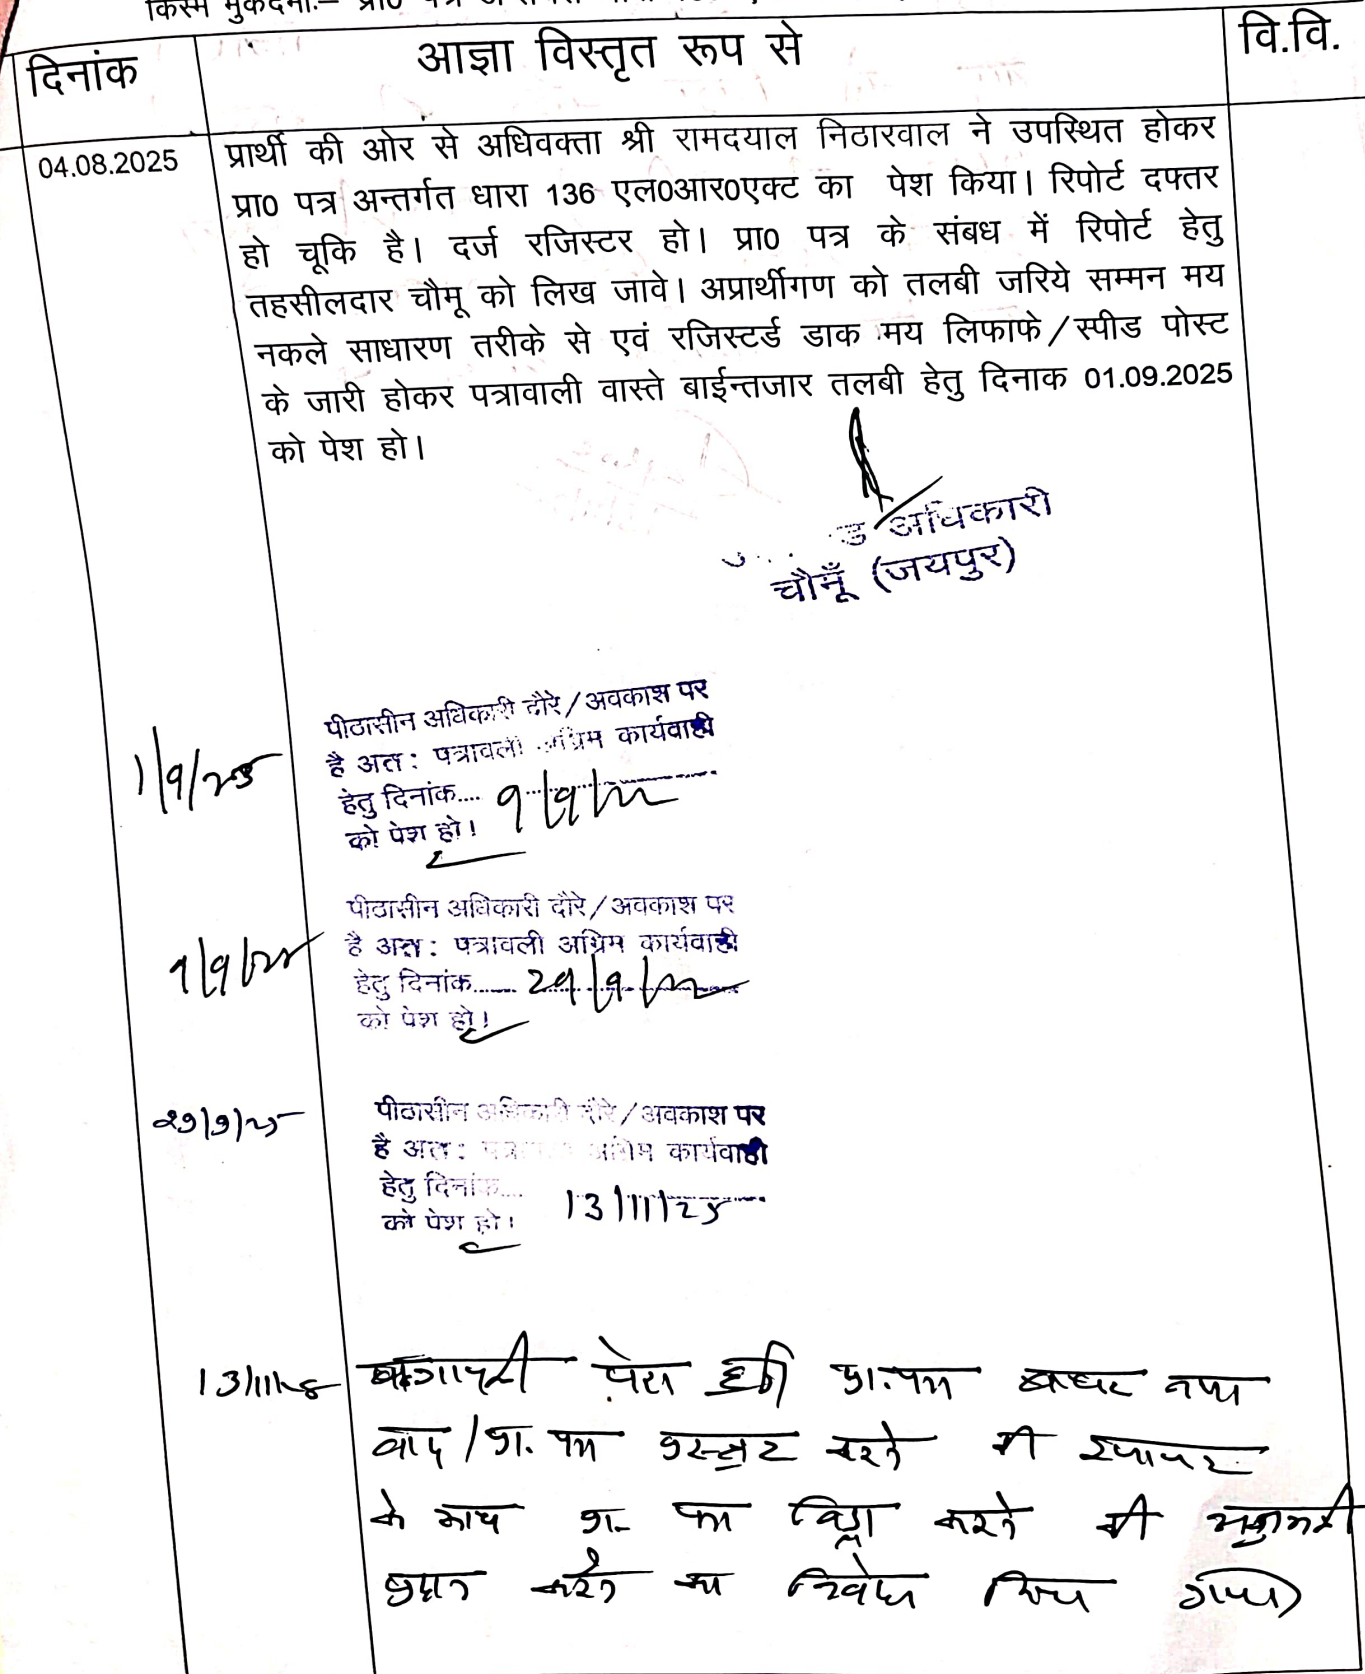 किस्म मुकदमा:– प्रा0 पत्र
दिनांक
आज्ञा विस्तृत रूप से
वि.वि.
04.08.2025
प्रार्थी की ओर से अधिवक्ता श्री रामदयाल निठारवाल ने उपस्थित होकर
प्रा0 पत्र अन्तर्गत धारा 136 एल0आर0एक्ट का पेश किया। रिपोर्ट दफ्तर
हो चूकि है। दर्ज रजिस्टर हो। प्रा0 पत्र के संबध में रिपोर्ट हेतु
तहसीलदार चौमू को लिख जावे। अप्रार्थीगण को तलबी जरिये सम्मन मय
नकले साधारण तरीके से एवं रजिस्टर्ड डाक मय लिफाफे/स्पीड पोस्ट
के जारी होकर पत्रावाली वास्ते बाईन्तजार तलबी हेतु दिनाक 01.09.2025
को पेश हो।
अधिकारी
चौमूँ (जयपुर)
1/9/25
पीठासीन अधिकारी दौरे/अवकाश पर
है अत: पत्रावली अग्रिम कार्यवाही
हेतु दिनांक.... 9/9/25
को पेश हो।
9/9/25
पीठासीन अधिकारी दौरे/अवकाश पर
है अत: पत्रावली अग्रिम कार्यवाही
हेतु दिनांक...... 29/9/25
को पेश हो।
29/9/25
पीठासीन अधिकारी दौरे/अवकाश पर
है अत: पत्रावली अग्रिम कार्यवाही
हेतु दिनांक.... 13/11/25
को पेश हो।
13/11/25
पेश हुई प्रा. पत्र
वाद/प्रा. पत्र प्रस्तुत करने की
के साथ प्रा. पत्र विड्रा करने की अनुमती
प्रदान करने का निवेदन किया गया